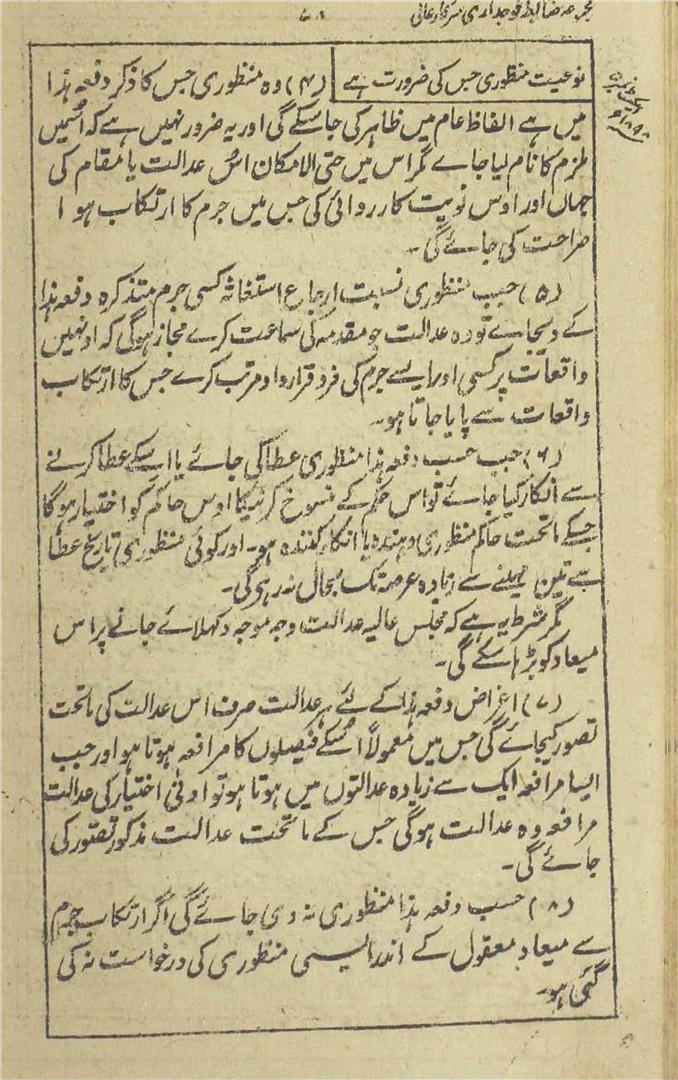 مجموعہ ضابطہ فوجداری سرکارعالی
نوعیت منظوری جس کی ضرورت ہے (۴) وہ منظوری جس کا ذکر دفعہ ہذا
میں ہے الفاظ عام میں ظاہر کی جا سکے گی اور یہ ضرور نہیں ہے کہ اسمیں
ملزم کا نام لیا جاے مگر اس میں حتی الامکان اس عدالت یا مقام کی
جہاں اور اوس نوبیت کارروائی کی جس میں جرم کا ارتکاب ہوا
صراحت کی جائے گی۔
(۵) جب منظوری نسبت ارجاع استغاثہ کسی جرم متذکرہ دفعہ ہذا
کے دیجاے تو وہ عدالت جو مقدمہ کی سماعت کرے مجاز ہوگی کہ اونہیں
واقعات پر کسی اور ایسے جرم کی فرد قرارداد مرتب کرے جس کا ارتکاب
واقعات سے پایا جاتا ہو۔
(۶) جب حسب دفعہ ہذا منظوری عطا کی جائے یا اسکے عطا کرنے
سے انکار کیا جائے تو اس حکم کے منسوخ کرنیکا اوس حاکم کو اختیار ہوگا
جسکے ماتحت حاکم منظوری دہندہ یا انکار کنندہ ہو۔ اور کوئی منظوری تاریخ عطا
سے تین مہینے سے زیادہ عرصہ تک بحال نہ رہیگی۔
مگر شرط یہ ہے کہ مجلس عالیہ عدالت وجہ موجہ دکہلائے جانے پر اس
میعاد کو بڑہا سکے گی۔
(۷) اغراض دفعہ ہذا کے لئے ہر عدالت صرف اس عدالت کی ماتحت
تصور کیجائے گی جس میں معمولاً اسکے فیصلوں کا مرافعہ ہوتا ہو اور جب
ایسا مرافعہ ایک سے زیادہ عدالتوں میں ہوتا ہو تو ادنیٰ اختیار کی عدالت
مرافعہ وہ عدالت ہوگی جس کے ماتحت عدالت مذکور تصور کی
جائے گی۔
(۸) حسب دفعہ ہذا منظوری نہ دی جائے گی اگر ارتکاب جرم
سے میعاد معقول کے اندر ایسی منظوری کی درخواست نہ کی
گئی ہو۔